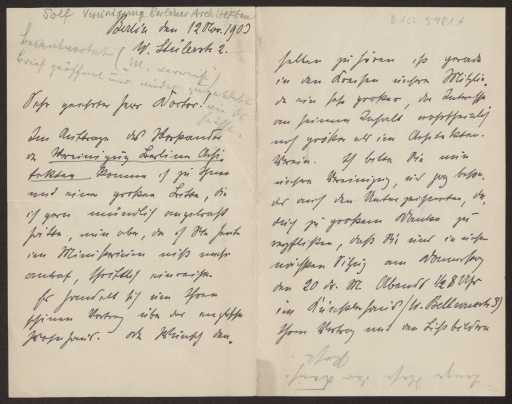 Solf Vereinigung Berliner Architekten
Berlin den 12 Nov. 1903
W. Stülerstr 2.
Sehr geehrter Herr Doctor.
Im Auftrage des Vorstandes
der Vereinigung Berliner Archi
tekten komme ich zu Ihnen
mit einer großen Bitte, die
ich gern mündlich angebracht
hätte, nun aber, da ich Sie heute
im Ministerium nicht mehr
antraf, schriftlich einreiche.
Es handelt sich um Ihren
schönen Vortrag über das englische
Wohnhaus. Der Wunsch den
selben zu hören ist gerade
in den Kreisen unserer Mitglie
der ein sehr großer, das Interesse
an seinem Inhalt wahrscheinlich
noch größer als im Architekten
Verein. Ich bitte Sie nun
unsere Vereinigung, wie ganz beson
ders auch den Unterzeichneten, da
durch zu großem Danke zu
verpflichten, daß Sie uns in unserer
nächsten Sitzung am Donnerstag
den 20 ds. M. Abends ½8 Uhr
im Künstlerhaus (W. Bellevuestr 3)
Ihren Vortrag mit den Lichtbildern